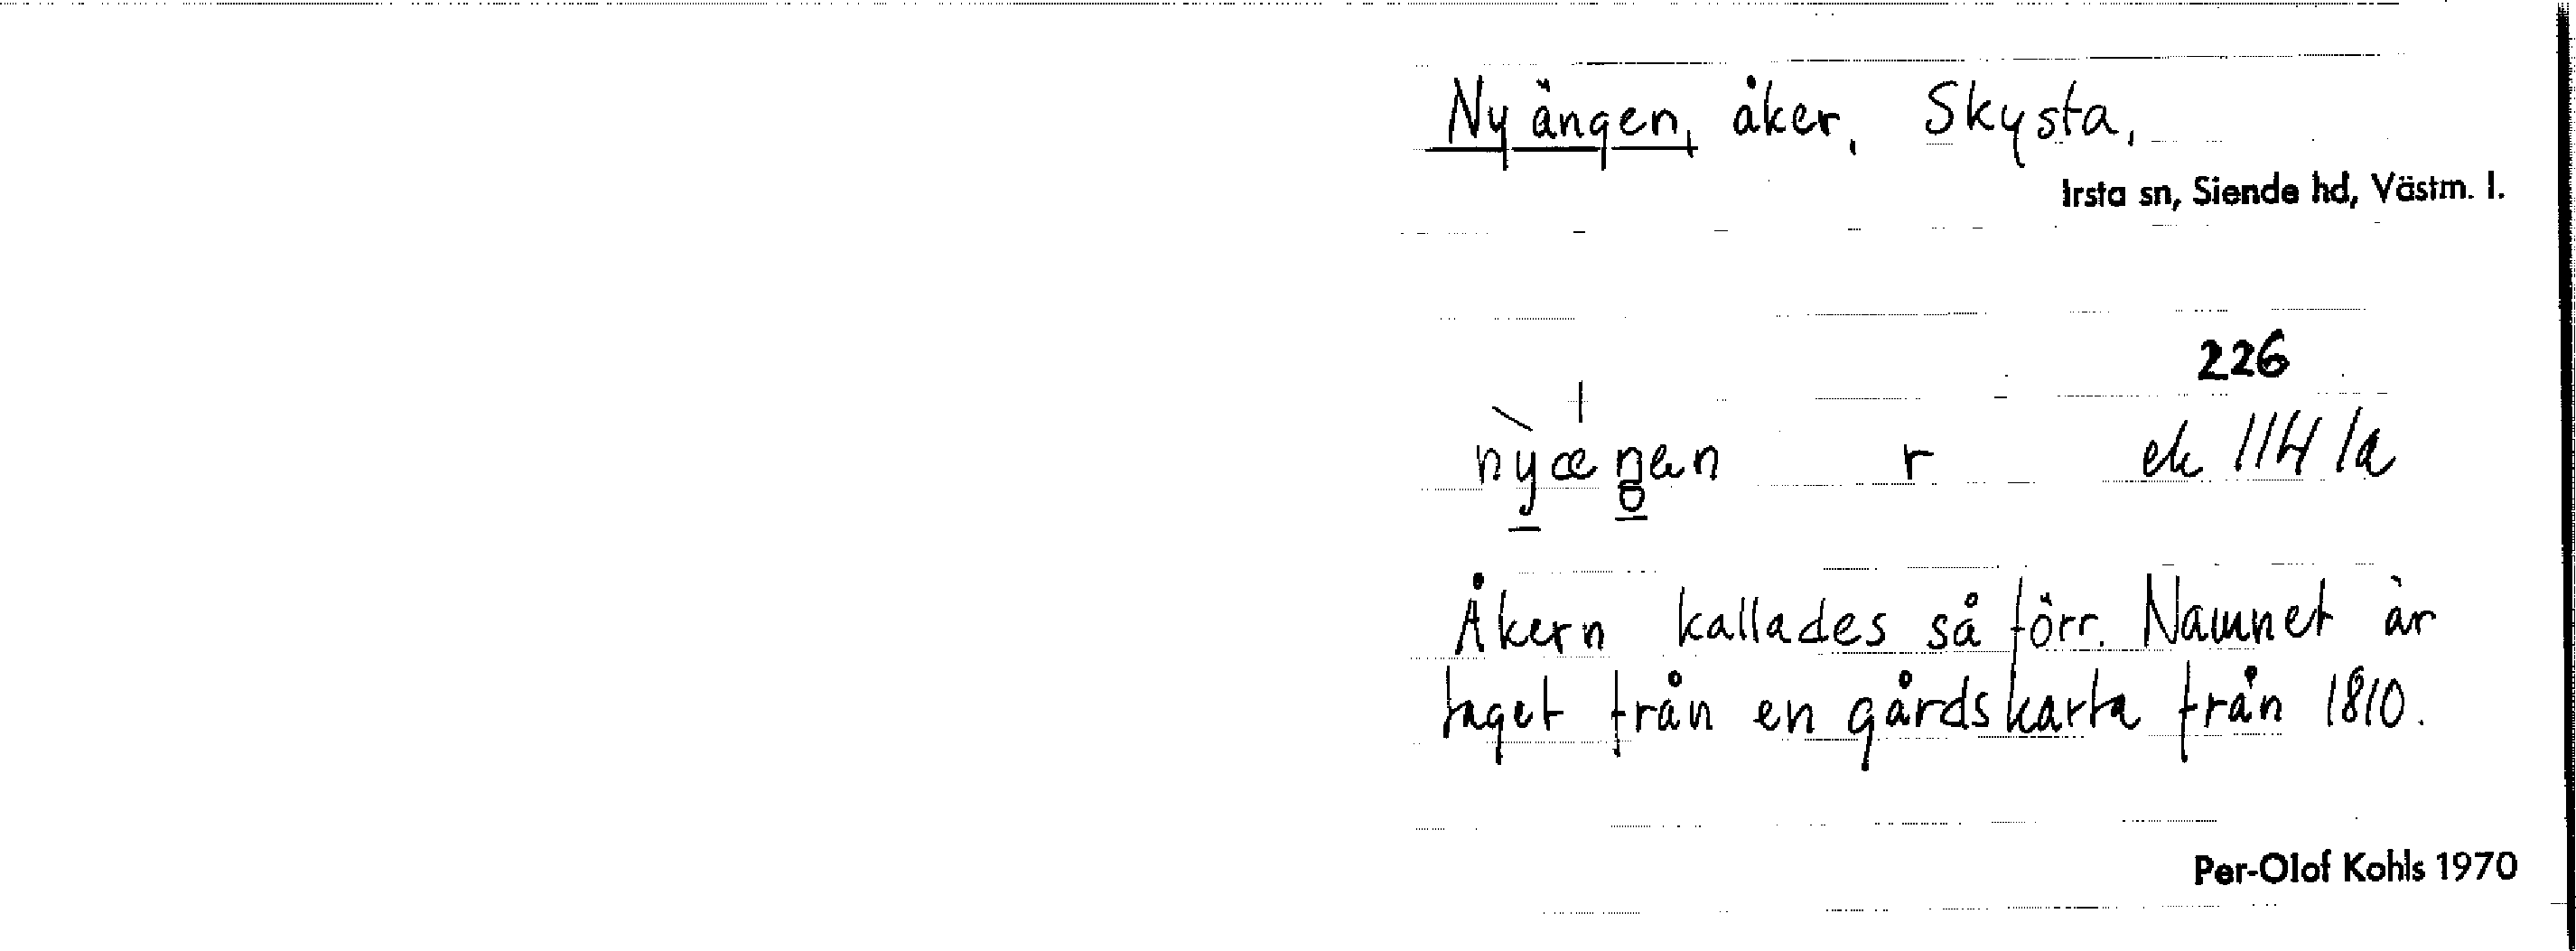 Nyängen, åker, Skysta,
Irsta sn, Siende hd, Västm. l.
226
nyængen r ek 114 1a
Åkern kallades så förr. Namnet är
taget från en gårdskarta från 1810.
Per-Olof Kohls 1970